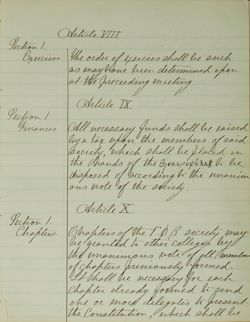 Article VIII
Section 1. The order of exercises shall be such
Exercises as may have been determined upon
at the preceeding meeting
Article IX
Section 1 All necessary funds shall be raised
Finances by a tax upon the members of said
society, which shall be placed in
the hands of the to be
disposed of according to the unanim
ous vote of the society.
Article X.
Section 1. Chapters of the society may
Chapters. be granted to other colleges by
the unanimous vote of all members
of chapters previously formed.
It shall be necessary for each
chapter already formed to send
one or more delegates to present
the Constitution, which shall be